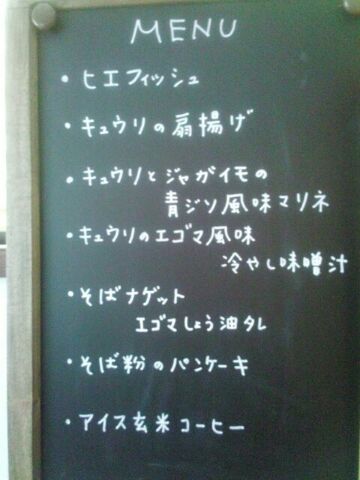 MENU
・ヒエフィッシュ
・キュウリの扇揚げ
・キュウリとジャガイモの
青ジソ風味マリネ
・キュウリのエゴマ風味
冷やし味噌汁
・そばナゲット
エゴマしょう油タレ
・そば粉のパンケーキ
・アイス玄米コーヒー